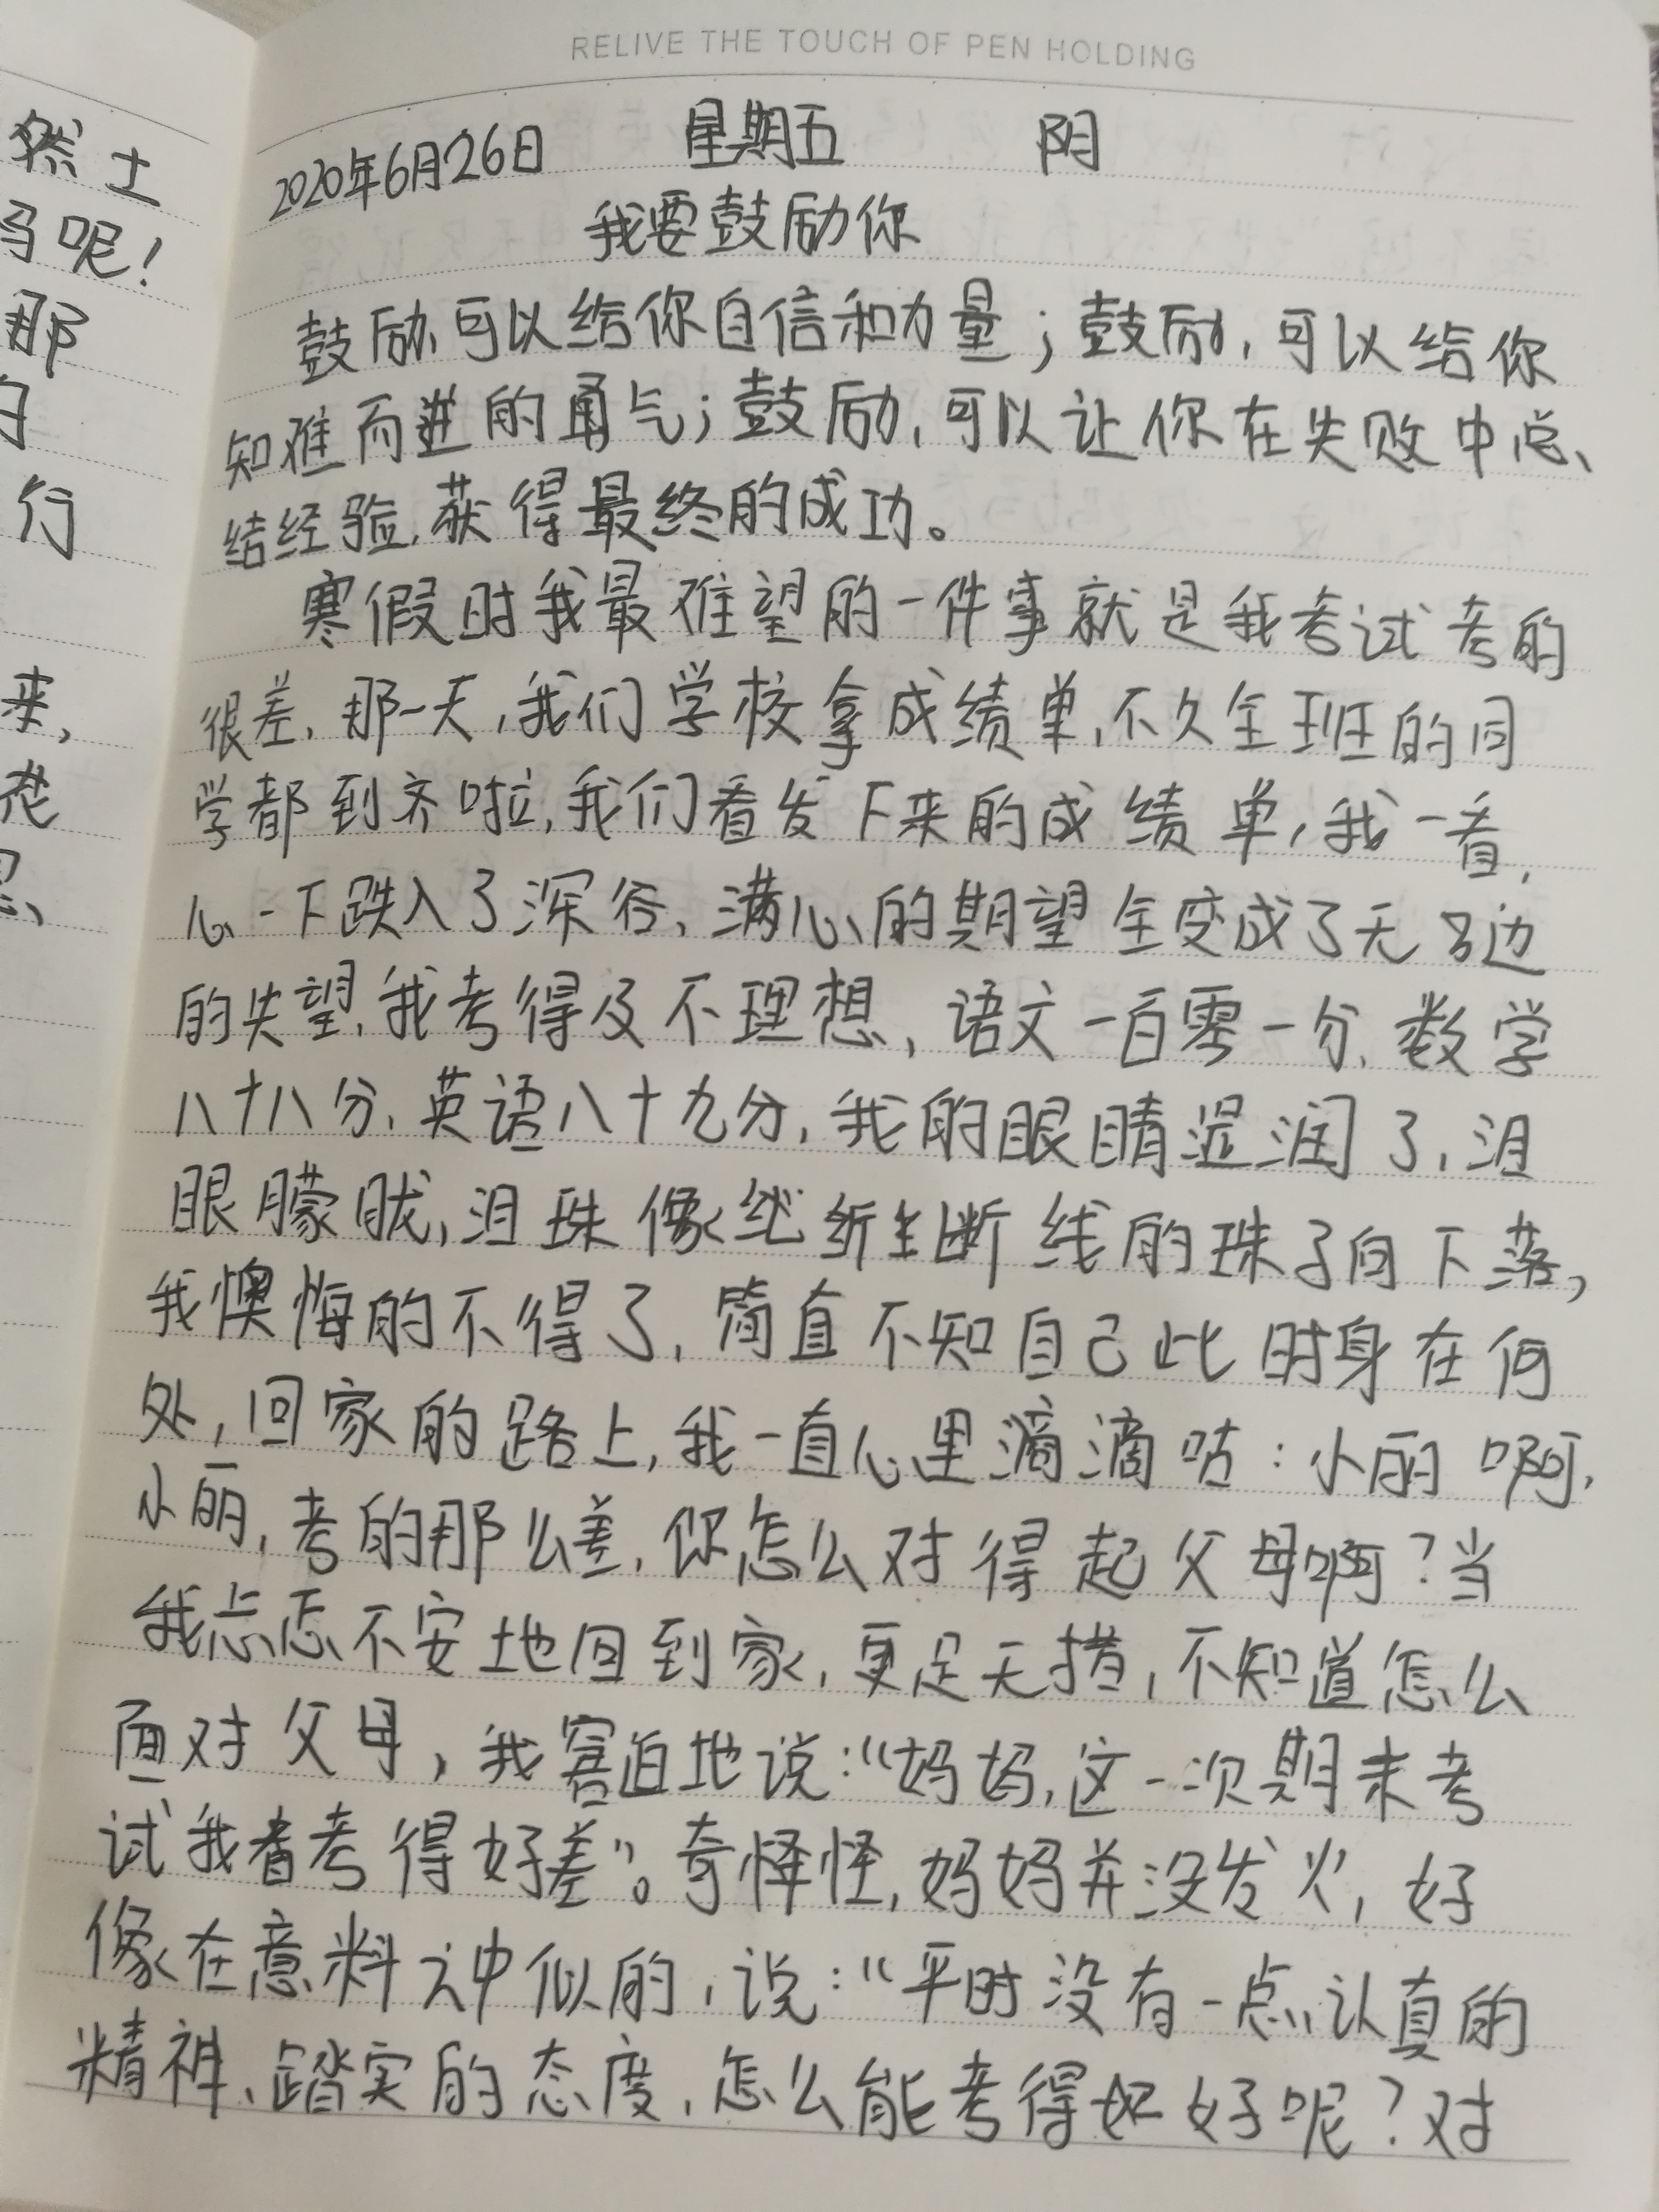 RELIVE THE TOUCH OF PEN HOLDING
2020年6月26日 星期五 阴
我要鼓励你
鼓励,可以给你自信和力量;鼓励,可以给你
知难而进的勇气;鼓励,可以让你在失败中总
结经验,获得最终的成功。
寒假时我最难望的一件事就是我考试考的
很差,那一天,我们学校拿成绩单,不久全班的同
学都到齐啦,我们看发下来的成绩单,我一看,
心一下跌入了深谷,满心的期望全变成了无边
的失望,我考得及不理想,语文一百零一分,数学
八十八分,英语八十九分,我的眼睛湿润了,泪
眼朦胧,泪珠像断线的珠子向下落,
我懊悔的不得了,简直不知自己此时身在何
处,回家的路上,我一直心里滴滴咕:小丽啊,
小丽,考的那么差,你怎么对得起父母啊?当
我忐忑不安地回到家,更足无措,不知道怎么
面对父母,我窘迫地说:“妈妈,这一次期末考
试我考得好差”。奇怪怪,妈妈并没发火,好
像在意料之中似的,说:“平时没有一点认真的
精神、踏实的态度,怎么能考得好呢?对
然土
吗呢!
那
行
来,